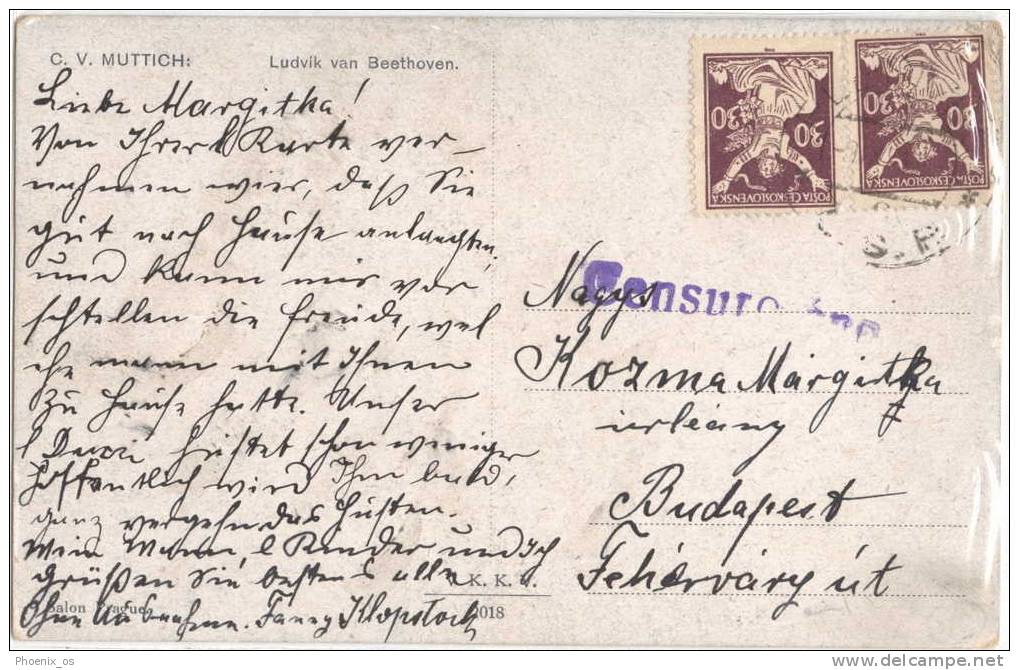 C. V. MUTTICH: Ludvik van Beethoven.
Liebe Margitka!
Von Ihrer l Karte ver-
nahmen wier, daß Sie
gut nach Hause anlangten,
und kann mir vor
schtellen die Freude, wel
che mann mit Ihnen
zu Hause hatte. Unser
l hustet schon weniger
hoffentlich wird Ihm bald,
ganz vergehn das Husten.
Mein Mann, l Kinder und Ich
grüßen Sie bestens alle
Ohne Ausnahme. Fanny Klopstock
K. K.
Salon Prague
2018
30 30
POŠTA ČESKOSLOVENSKA
30 30
POŠTA ČESKOSLOVENSKA
Censure
Nagys
Kozma Margitka
urleány
Budapest
Fehérváry út
Phoenix_os
http://www.delcampe.net